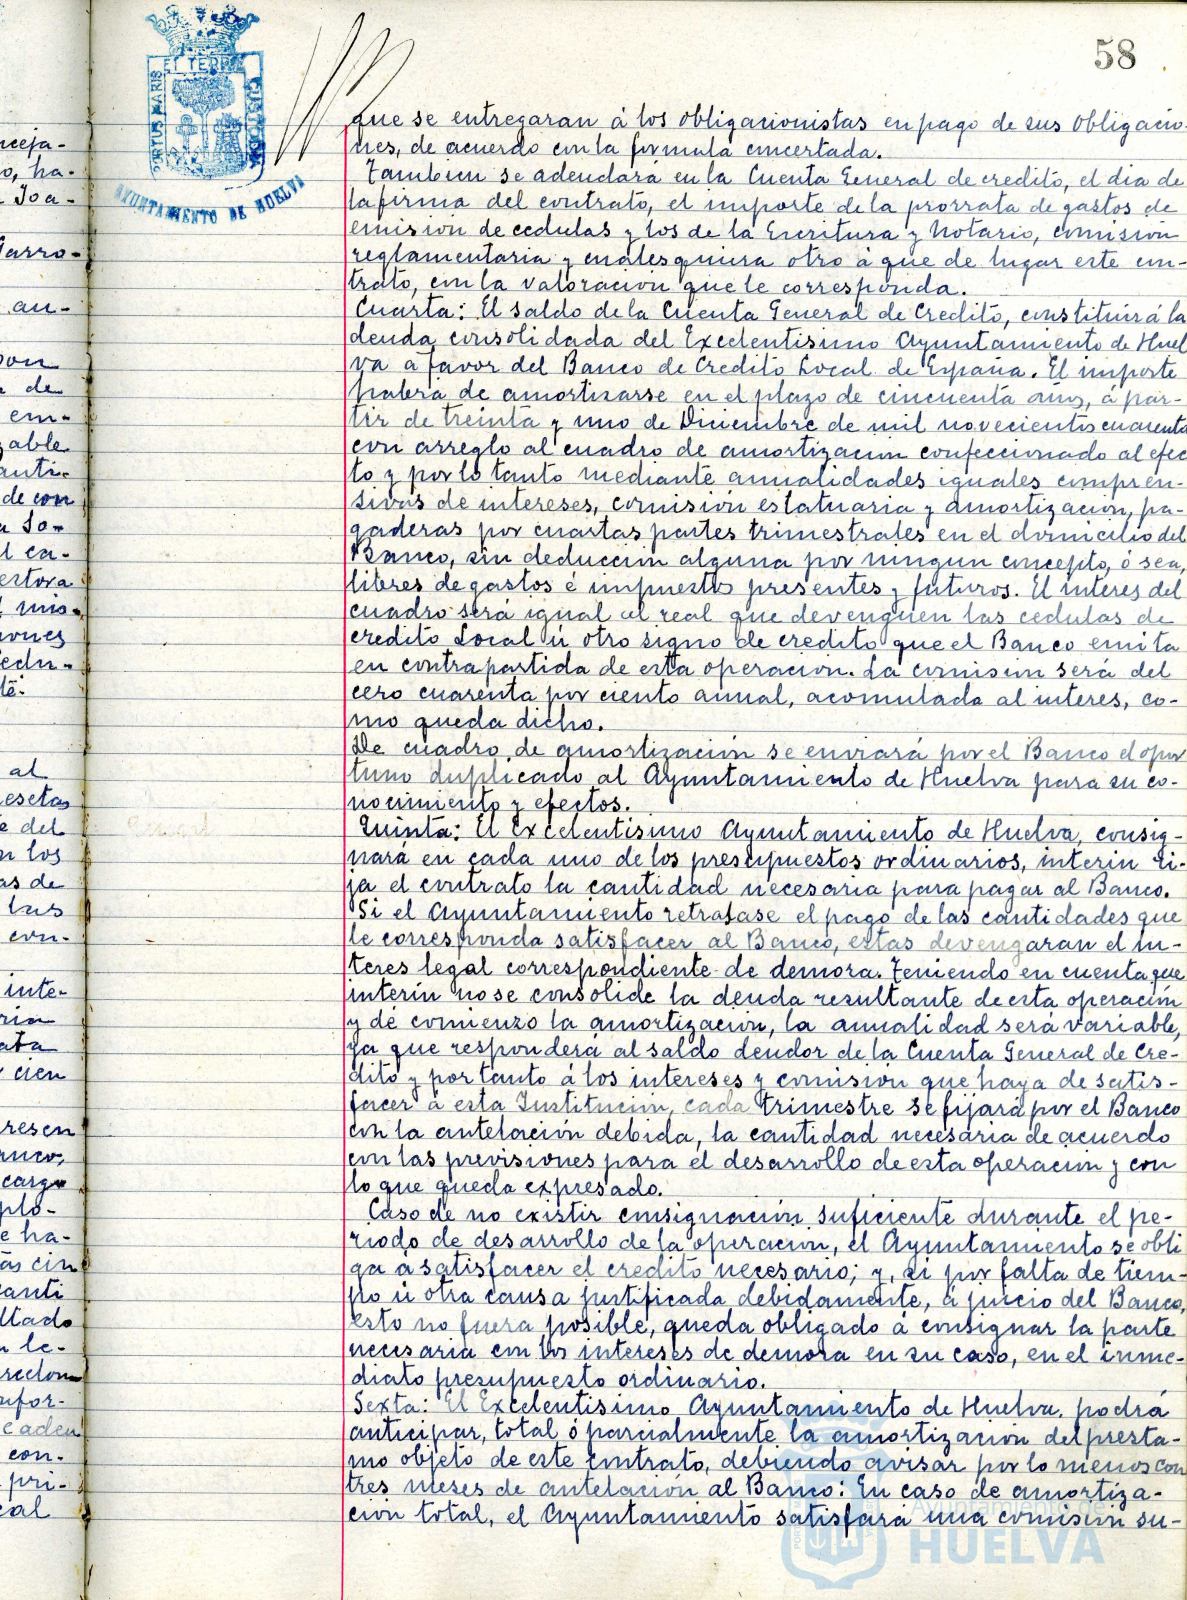 58
PORTUS MARIS
ET TERRÆ
CUSTODIA
AYUNTAMIENTO DE HUELVA
que se entregaran á los obligacionistas en pago de sus obligacio-
nes, de acuerdo con la fórmula concertada.
Tambien se adeudará en la Cuenta General de credito, el dia de
la firma del contrato, el importe de la prorrata de gastos de
emisión de cedulas y los de la Escritura y Notario, comisión
reglamentaria y cualesquiera otro á que de lugar este con-
trato, con la valoración que le corresponda.
Cuarta: El saldo de la Cuenta General de Credito, constituirá la
deuda consolidada del Excelentisimo Ayuntamiento de Huel
va a favor del Banco de Credito Local de España. El importe
habrá de amortizarse en el plazo de cincuenta años, á par-
tir de treinta y uno de Diciembre de mil novecientos cuarenta
con arreglo al cuadro de amortización confeccionado al efec
to y por lo tanto mediante anualidades iguales compren-
sivas de intereses, comisión estatuaria y amortización, pa-
gaderas por cuartas partes trimestrales en el domicilio del
Banco, sin deducción alguna por ningun concepto, ó sea,
libres de gastos é impuestos presentes y futuros. El interes del
cuadro será igual al real que devenguen las cedulas de
credito Local ú otro signo de credito que el Banco emita
en contrapartida de esta operación. La comisión será del
cero cuarenta por ciento anual, acomulada al interes, co-
mo queda dicho.
De cuadro de amortización se enviará por el Banco el opor
tuno duplicado al Ayuntamiento de Huelva para su co-
nocimiento y efectos.
Quinta: El Excelentisimo Ayuntamiento de Huelva, consig-
nará en cada uno de los presupuestos ordinarios, interin ri-
ja el contrato la cantidad necesaria para pagar al Banco.
Si el Ayuntamiento retrasase el pago de las cantidades que
le corresponda satisfacer al Banco, estas devengaran el in-
teres legal correspondiente de demora. Teniendo en cuenta que
interin no se consolide la deuda resultante de esta operación
y dé comienzo la amortización, la anualidad será variable,
ya que responderá al saldo deudor de la Cuenta General de Cre-
dito y por tanto á los intereses y comisión que haya de satis-
facer á esta Institución, cada trimestre se fijará por el Banco
con la antelación debida, la cantidad necesaria de acuerdo
con las previsiones para el desarrollo de esta operación y con
lo que queda expresado.
Caso de no existir consignación suficiente durante el pe-
riodo de desarrollo de la operación, el Ayuntamiento se obli
ga á satisfacer el credito necesario; y, si por falta de tiem-
po ú otra causa justificada debidamente, á juicio del Banco,
esto no fuera posible, queda obligado á consignar la parte
necesaria con los intereses de demora en su caso, en el inme-
diato presupuesto ordinario.
Sexta: El Excelentisimo Ayuntamiento de Huelva, podrá
anticipar, total ó parcialmente la amortización del presta-
mo objeto de este contrato, debiendo avisar por lo menos con
tres meses de antelación al Banco: En caso de amortiza-
ción total, el Ayuntamiento satisfará una comisión su-
Ayuntamiento de
HUELVA